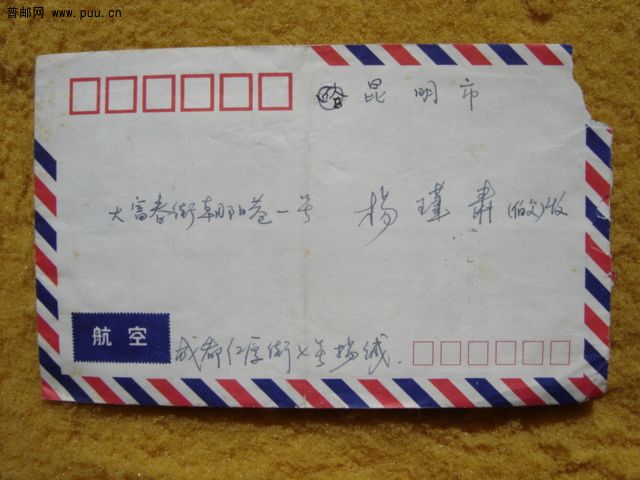 普邮网 www.puu.cn
昆明市
大富春街朝阳巷一号
杨瑾
收
航空
成都仁厚街七号杨缄.